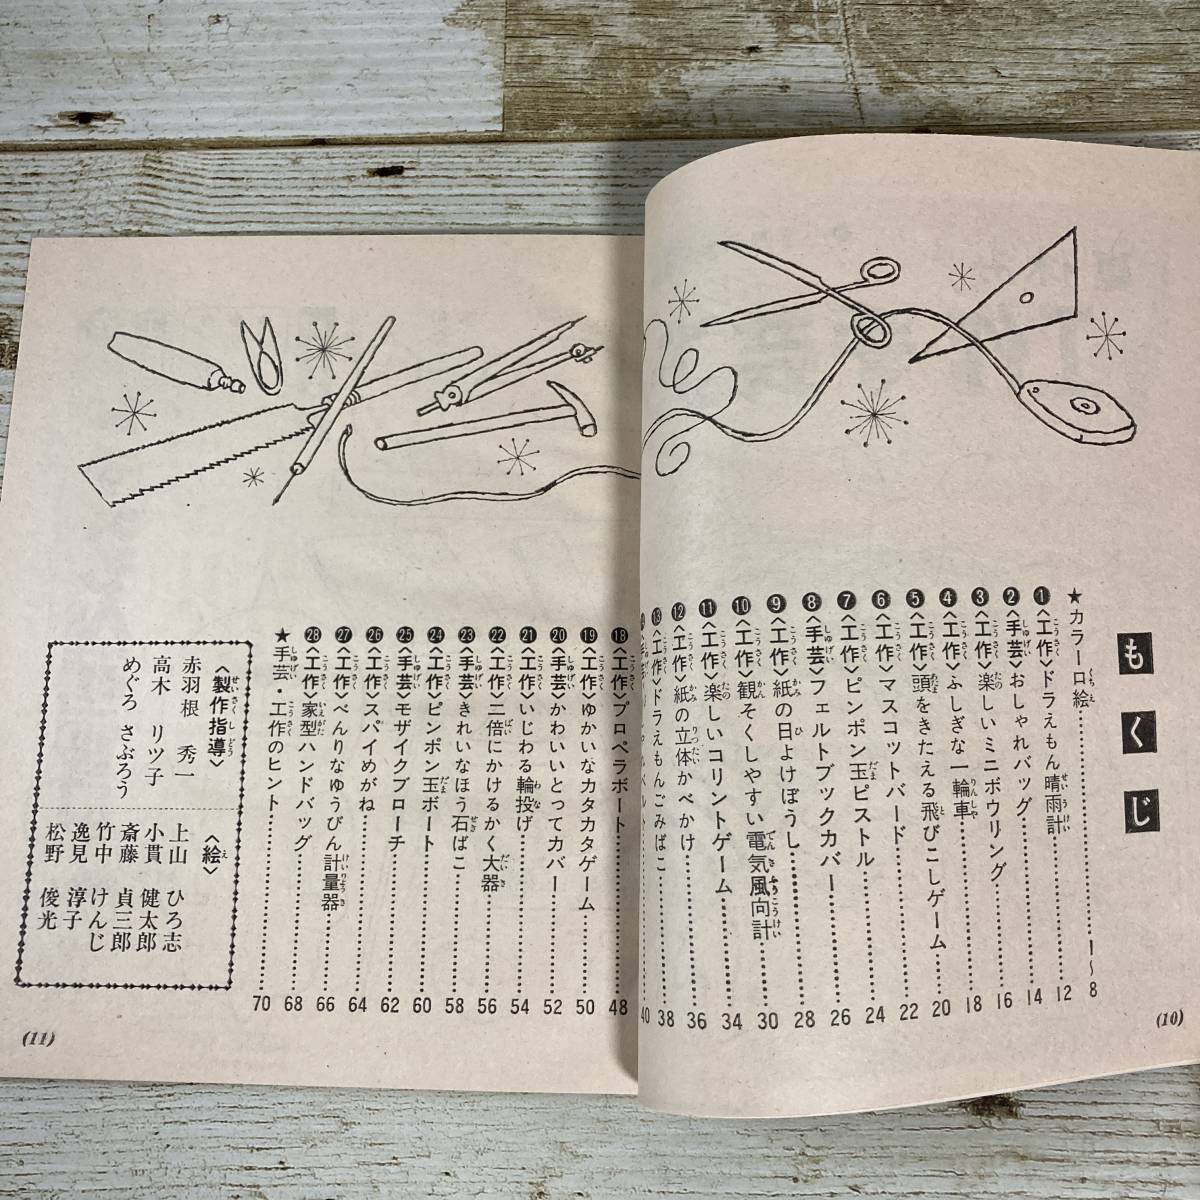 もくじ
★カラー口絵……1〜8
❶〈工作〉ドラえもん晴雨計……12
❷〈手芸〉おしゃれバッグ……14
❸〈工作〉楽しいミニボウリング……16
❹〈工作〉ふしぎな一輪車……18
❺〈工作〉頭をきたえる飛びこしゲーム……20
❻〈工作〉マスコットバード……22
❼〈工作〉ピンポン玉ピストル……24
❽〈手芸〉フェルトブックカバー……26
❾〈工作〉紙の日よけぼうし……28
❿〈工作〉観そくしやすい電気風向計……30
⓫〈工作〉楽しいコリントゲーム……34
⓬〈工作〉紙の立体かべかけ……36
⓭〈工作〉ドラえもんごみばこ……38
40
(10)
⓲〈工作〉プロペラボート……48
⓳〈工作〉ゆかいなカタカタゲーム……50
⓴〈手芸〉かわいいとってカバー……52
㉑〈工作〉いじわる輪投げ……54
㉒〈工作〉二倍にかけるかく大器……56
㉓〈手芸〉きれいなほう石ばこ……58
㉔〈工作〉ピンポン玉ボート……60
㉕〈手芸〉モザイクブローチ……62
㉖〈工作〉スパイめがね……64
㉗〈工作〉べんりなゆうびん計量器……66
㉘〈工作〉家型ハンドバッグ……68
★手芸・工作のヒント……70
〈製作指導〉
赤羽根　秀一
高木　リツ子
めぐろ　さぶろう
〈絵〉
上山　ひろ志
小貫　健太郎
斎藤　貞三郎
竹中　けんじ
逸見　淳子
松野　俊光
(11)